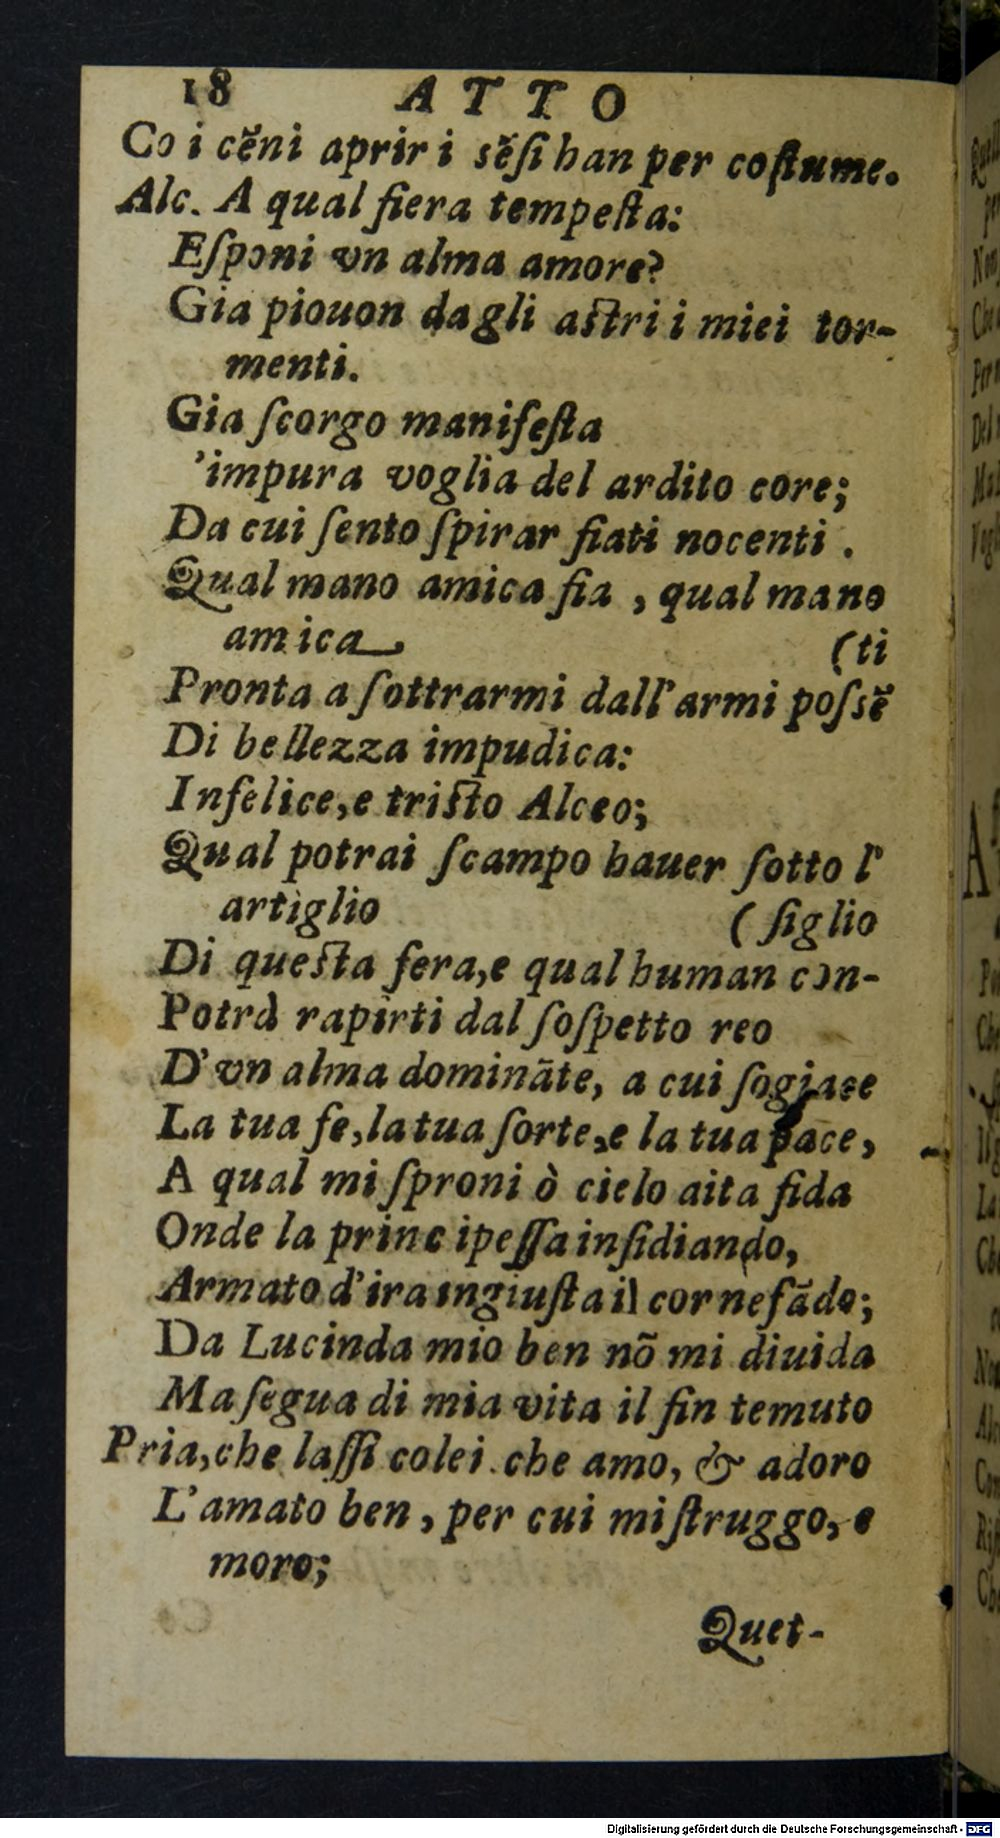 18 ATTO
Co i cẽni aprir i sẽſi han per coſtume.
Alc. A qual fiera tempeſta:
Eſponi vn alma amore?
Gia piouon dagli aſtri i miei tor-
menti.
Gia ſcorgo manifeſta
'impura voglia del ardito core;
Da cui ſento ſpirar fiati nocenti.
Qual mano amica fia, qual mano
amica, (ti
Pronta a ſottrarmi dall'armi poſsẽ
Di bellezza impudica:
Infelice, e triſto Alceo;
Qual potrai ſcampo hauer ſotto l'
artiglio (ſiglio
Di queſta fera, e qual human con-
Potrà rapirti dal ſoſpetto reo
D'vn alma dominãte, a cui ſogiace
La tua fe, la tua ſorte, e la tua pace,
A qual mi ſproni ò cielo aita fida
Onde la principeſſa inſidiando,
Armato d'ira ingiuſta il cor nefãdo;
Da Lucinda mio ben nõ mi diuida
Ma ſegua di mia vita il fin temuto
Pria, che laſſi colei che amo, & adoro
L'amato ben, per cui mi ſtruggo, e
moro;
Quet-
Digitalisierung gefördert durch die Deutsche Forschungsgemeinschaft - DFG